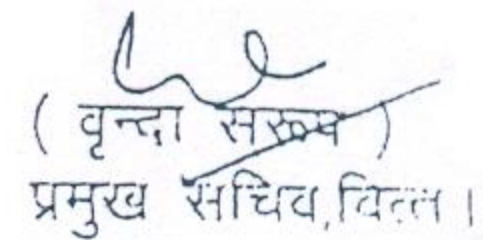 ( वृन्दा सरूप )
प्रमुख सचिव,वित्त ।